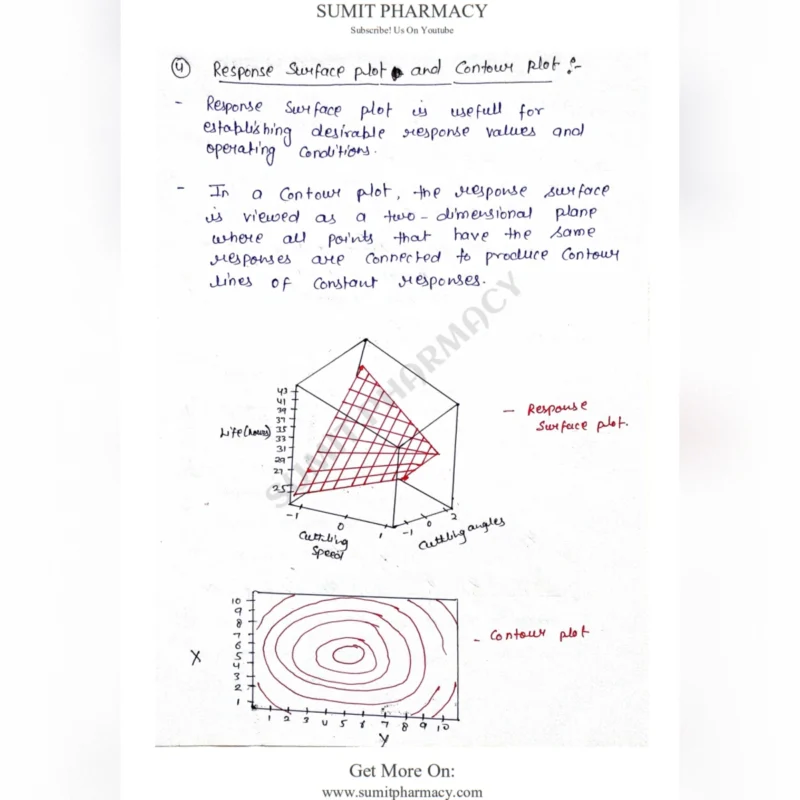 SUMIT PHARMACY
Subscribe! Us On Youtube
④ Response Surface plot and Contour plot :-
- Response Surface plot is usefull for
establishing desirable response values and
operating Conditions.
- In a Contour plot, the response surface
is viewed as a two-dimensional plane
where all points that have the same
responses are connected to produce Contour
lines of Constant responses.
SUMIT PHARMACY
43
41
39
37
35
33
31
29
27
25
Life (hours)
-1 0 1
Cuttling
Speed
-1 0 2
Cuttling angles
- Response
Surface plot.
10
9
8
7
6
5
4
3
2
1
X
1 2 3 4 5 6 7 8 9 10
Y
- Contour plot
Get More On:
www.sumitpharmacy.com